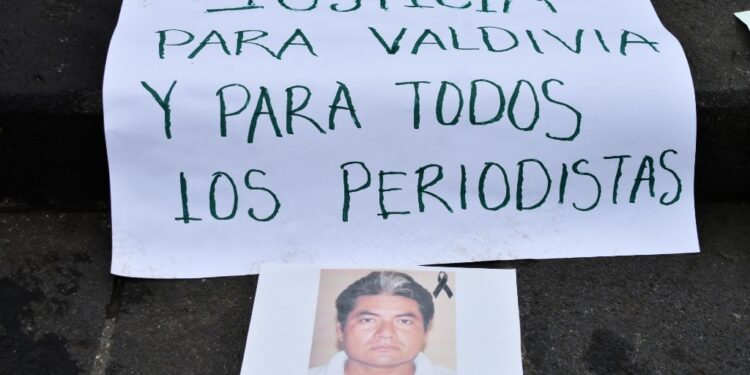 JUSTICIA
PARA VALDIVIA
Y PARA TODOS
LOS PERIODISTAS